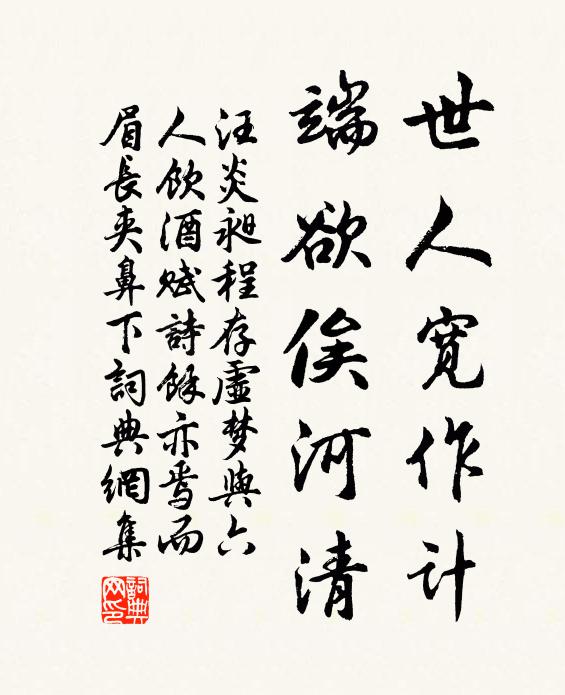 世人寬作计
端欲俟河清
汪炎昶程存虛梦與六
人飲酒赋詩餘亦焉而
眉長夾鼻下詞典網集
詞典网印